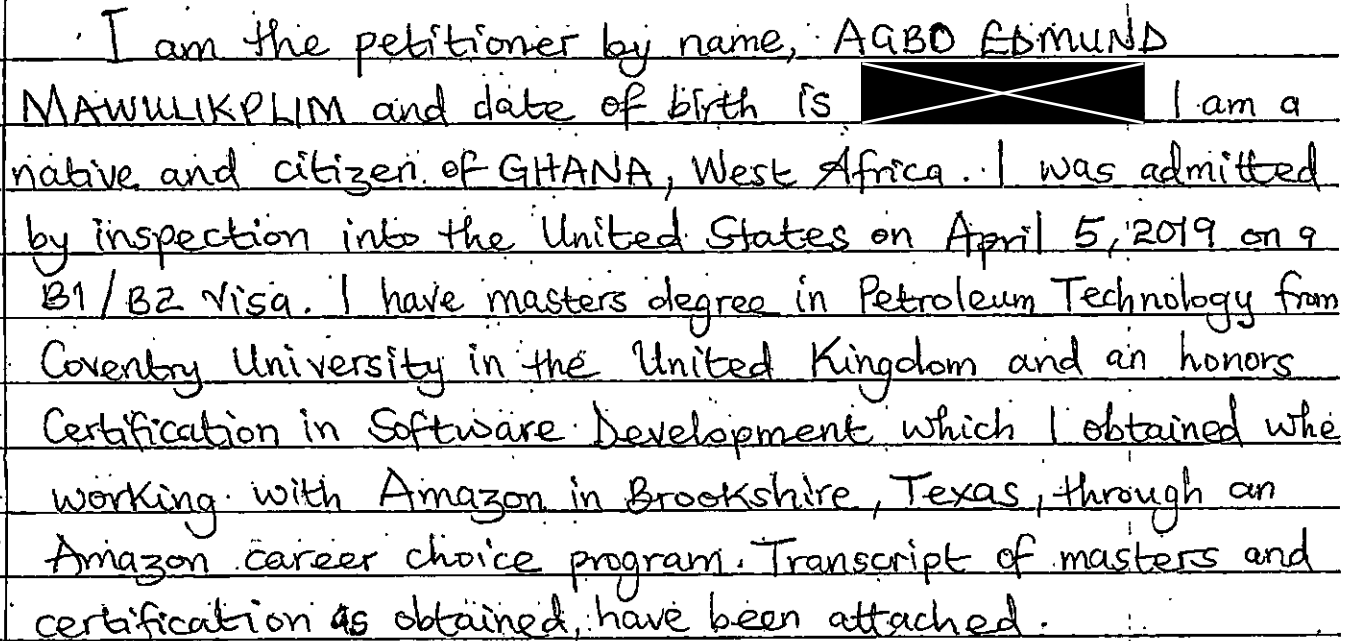 I am the petitioner by name, AGBO EDMUND
MAWULIKPLIM and date of birth is I am a
native and citizen of GHANA, West Africa. I was admitted
by inspection into the United States on April 5, 2019 on a
B1/B2 Visa. I have masters degree in Petroleum Technology from
Coventry University in the United Kingdom and an honors
Certification in Software Development which I obtained whe
working with Amazon in Brookshire, Texas, through an
Amazon career choice program. Transcript of masters and
certification as obtained, have been attached.